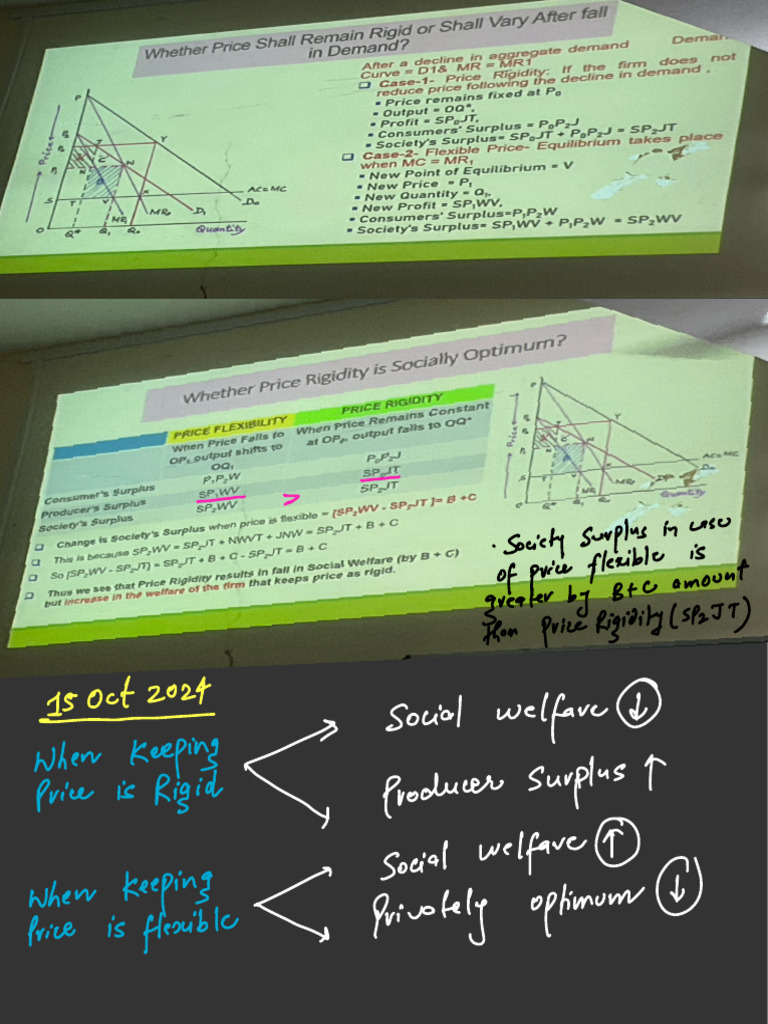 Whether Price Shall Remain Rigid or Shall Vary After fall
in Demand?
After a decline in aggregate demand Deman
Curve = D1& MR = MR1
Case-1- Price Rigidity: If the firm does not
reduce price following the decline in demand .
Price remains fixed at P₀
Output = OQ*.
Profit = SP₀JT.
Consumers' Surplus = P₀P₂J
Society's Surplus= SP₀JT + P₀P₂J = SP₂JT
Case-2- Flexible Price- Equilibrium takes place
when MC = MR₁
New Point of Equilibrium = V
New Price = P₁
New Quantity = Q₁.
New Profit = SP₁WV.
Consumers' Surplus=P₁P₂W
Society's Surplus= SP₁WV + P₁P₂W = SP₂WV
Price
P
Y
AC=MC
S
T
V
X
MR₁
MR₀
D₁
D₀
O
Q*
Q₁
Q₀
Quantity
Whether Price Rigidity is Socially Optimum?
PRICE FLEXIBILITY
PRICE RIGIDITY
When Price Falls to
OP₁ output shifts to
OQ₁
When Price Remains Constant
at OP₀, output falls to OQ*
Consumer's Surplus P₁P₂W P₀P₂J
Producer's Surplus SP₁WV > SP₀JT
Society's Surplus SP₂WV SP₂JT
Change is Society's Surplus when price is flexible = [SP₂WV - SP₂JT ]= B +C
This is because SP₂WV = SP₂JT + NWVT + JNW = SP₂JT + B + C
So [SP₂WV - SP₂JT) = SP₂JT + B + C - SP₂JT = B + C
Thus we see that Price Rigidity results in fall in Social Welfare (by B + C)
but increase in the welfare of the firm that keeps price as rigid.
Price
P
Y
AC=MC
S
D₀
O
Q*
Q₁
Q₀
Quantity
· Society Surplus in case
of price flexible is
greater by B+C amount
than Price Rigidity (SP₂JT)
15 Oct 2024
When Keeping
Price is Rigid
Social welfare ↓
Producer Surplus ↑
When keeping
Price is flexible
Social welfare ↑
Privately optimum ↓